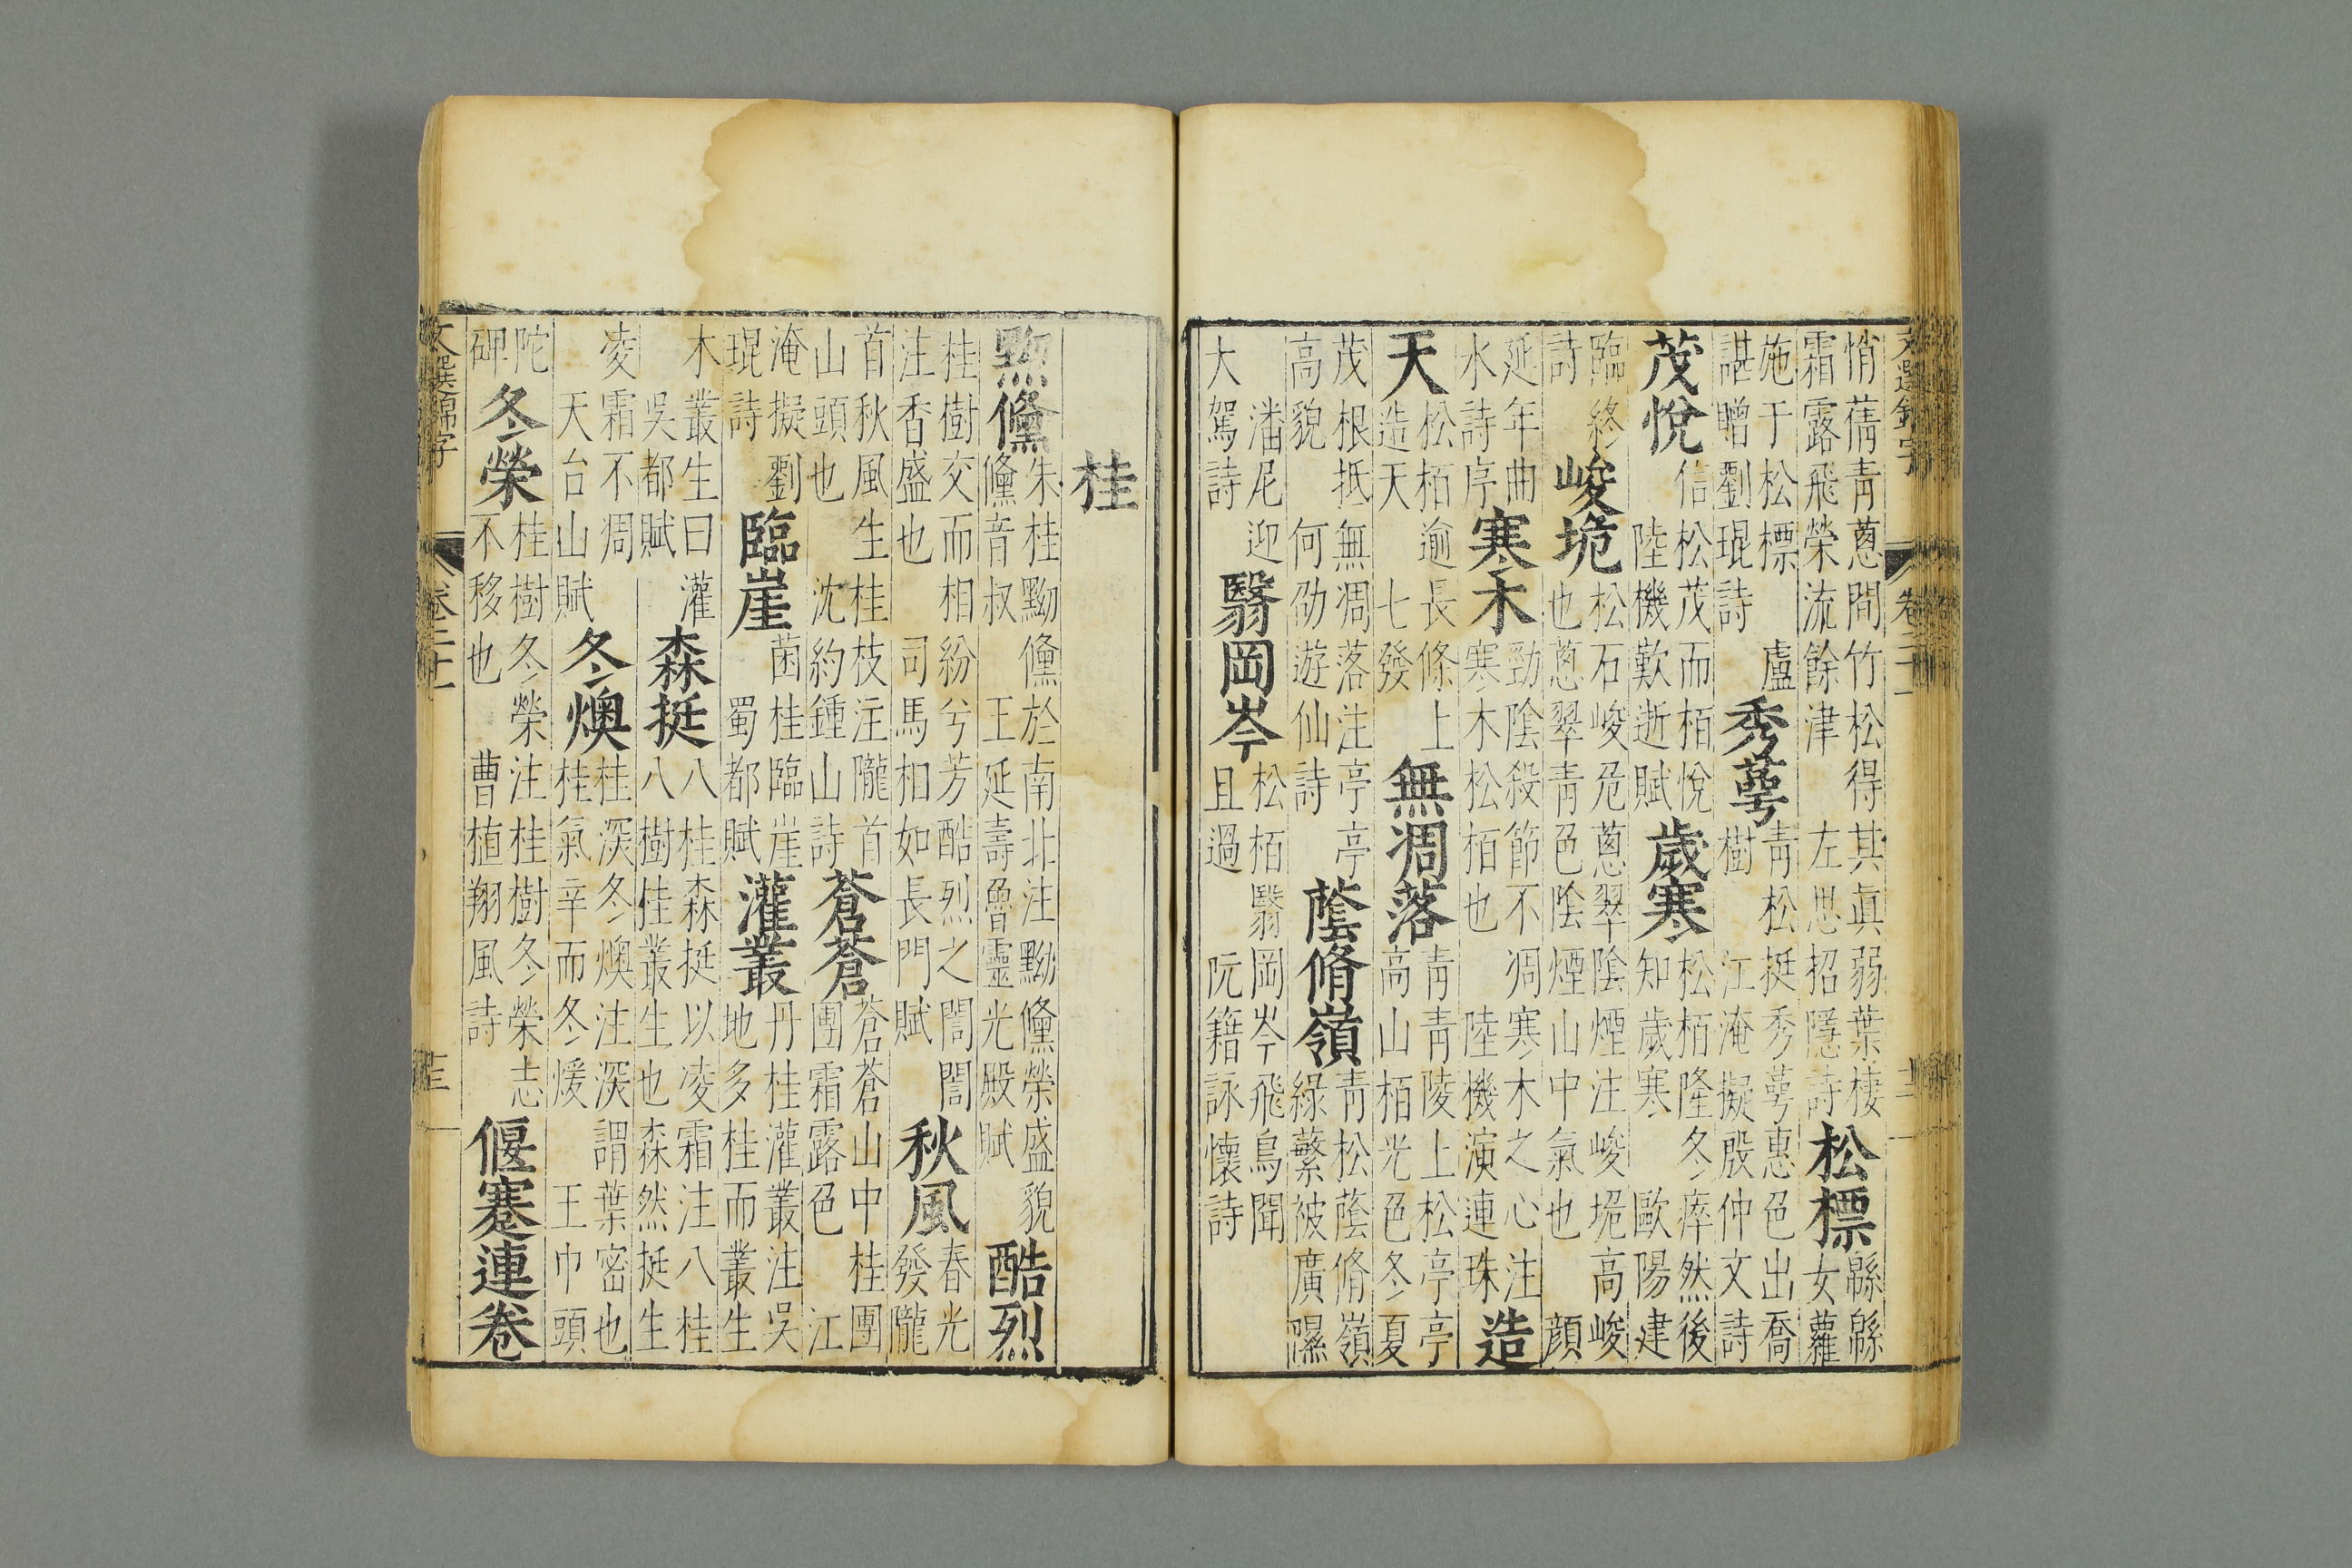 文選錦字 卷二十一
悄蒨青蔥間竹松得其真弱葉棲霜露飛榮流餘津 左思招隱詩 松標 綿綿女蘿
施于松標 盧諶贈劉琨詩 秀萼 青松挺秀萼惠色出喬樹 江淹擬殷仲文詩
茂悅 信松茂而栢悅 陸機歎逝賦 歲寒 松栢隆冬瘁然後知歲寒 歐陽建
臨終詩 峻垝 松石峻危蔥翠陰煙注峻垝高峻也蔥翠青色陰煙山中氣也 顔
延年曲水詩序 寒木 勁陰殺節不凋寒木之心注寒木松栢也 陸機演連珠 造
天 松栢逾長條上造天 七發 無凋落 青青陵上松亭亭高山栢光色冬夏
茂根抵無凋落注亭亭高貌 何劭遊仙詩 蔭脩嶺 青松蔭脩嶺綠蘩被廣隰
潘尼迎大駕詩 翳岡岑 松栢翳岡岑飛鳥聞且過 阮籍詠懷詩
桂
黝儵 朱桂黝儵於南北注黝儵榮盛貌儵音叔 王延壽魯靈光殿賦 酷烈
桂樹交而相紛兮芳酷烈之誾誾注香盛也 司馬相如長門賦 秋風 春光發隴
首秋風生桂枝注隴首山頭也 沈約鍾山詩 蒼蒼 蒼蒼山中桂團團霜露色 江
淹擬劉琨詩 臨崖 菌桂臨崖 蜀都賦 灌叢 丹桂灌叢注吳地多桂而叢生
木叢生曰灌 吳都賦 森挺 八桂森挺以凌霜注八桂八樹佳叢生也森然挺生
凌霜不凋 天台山賦 冬燠 桂深冬燠注深謂葉密也桂氣辛而冬煖 王巾頭
陀碑 冬榮 桂樹冬榮注桂樹冬榮志不移也 曹植翔風詩 偃蹇連卷
文選錦字 卷二十一